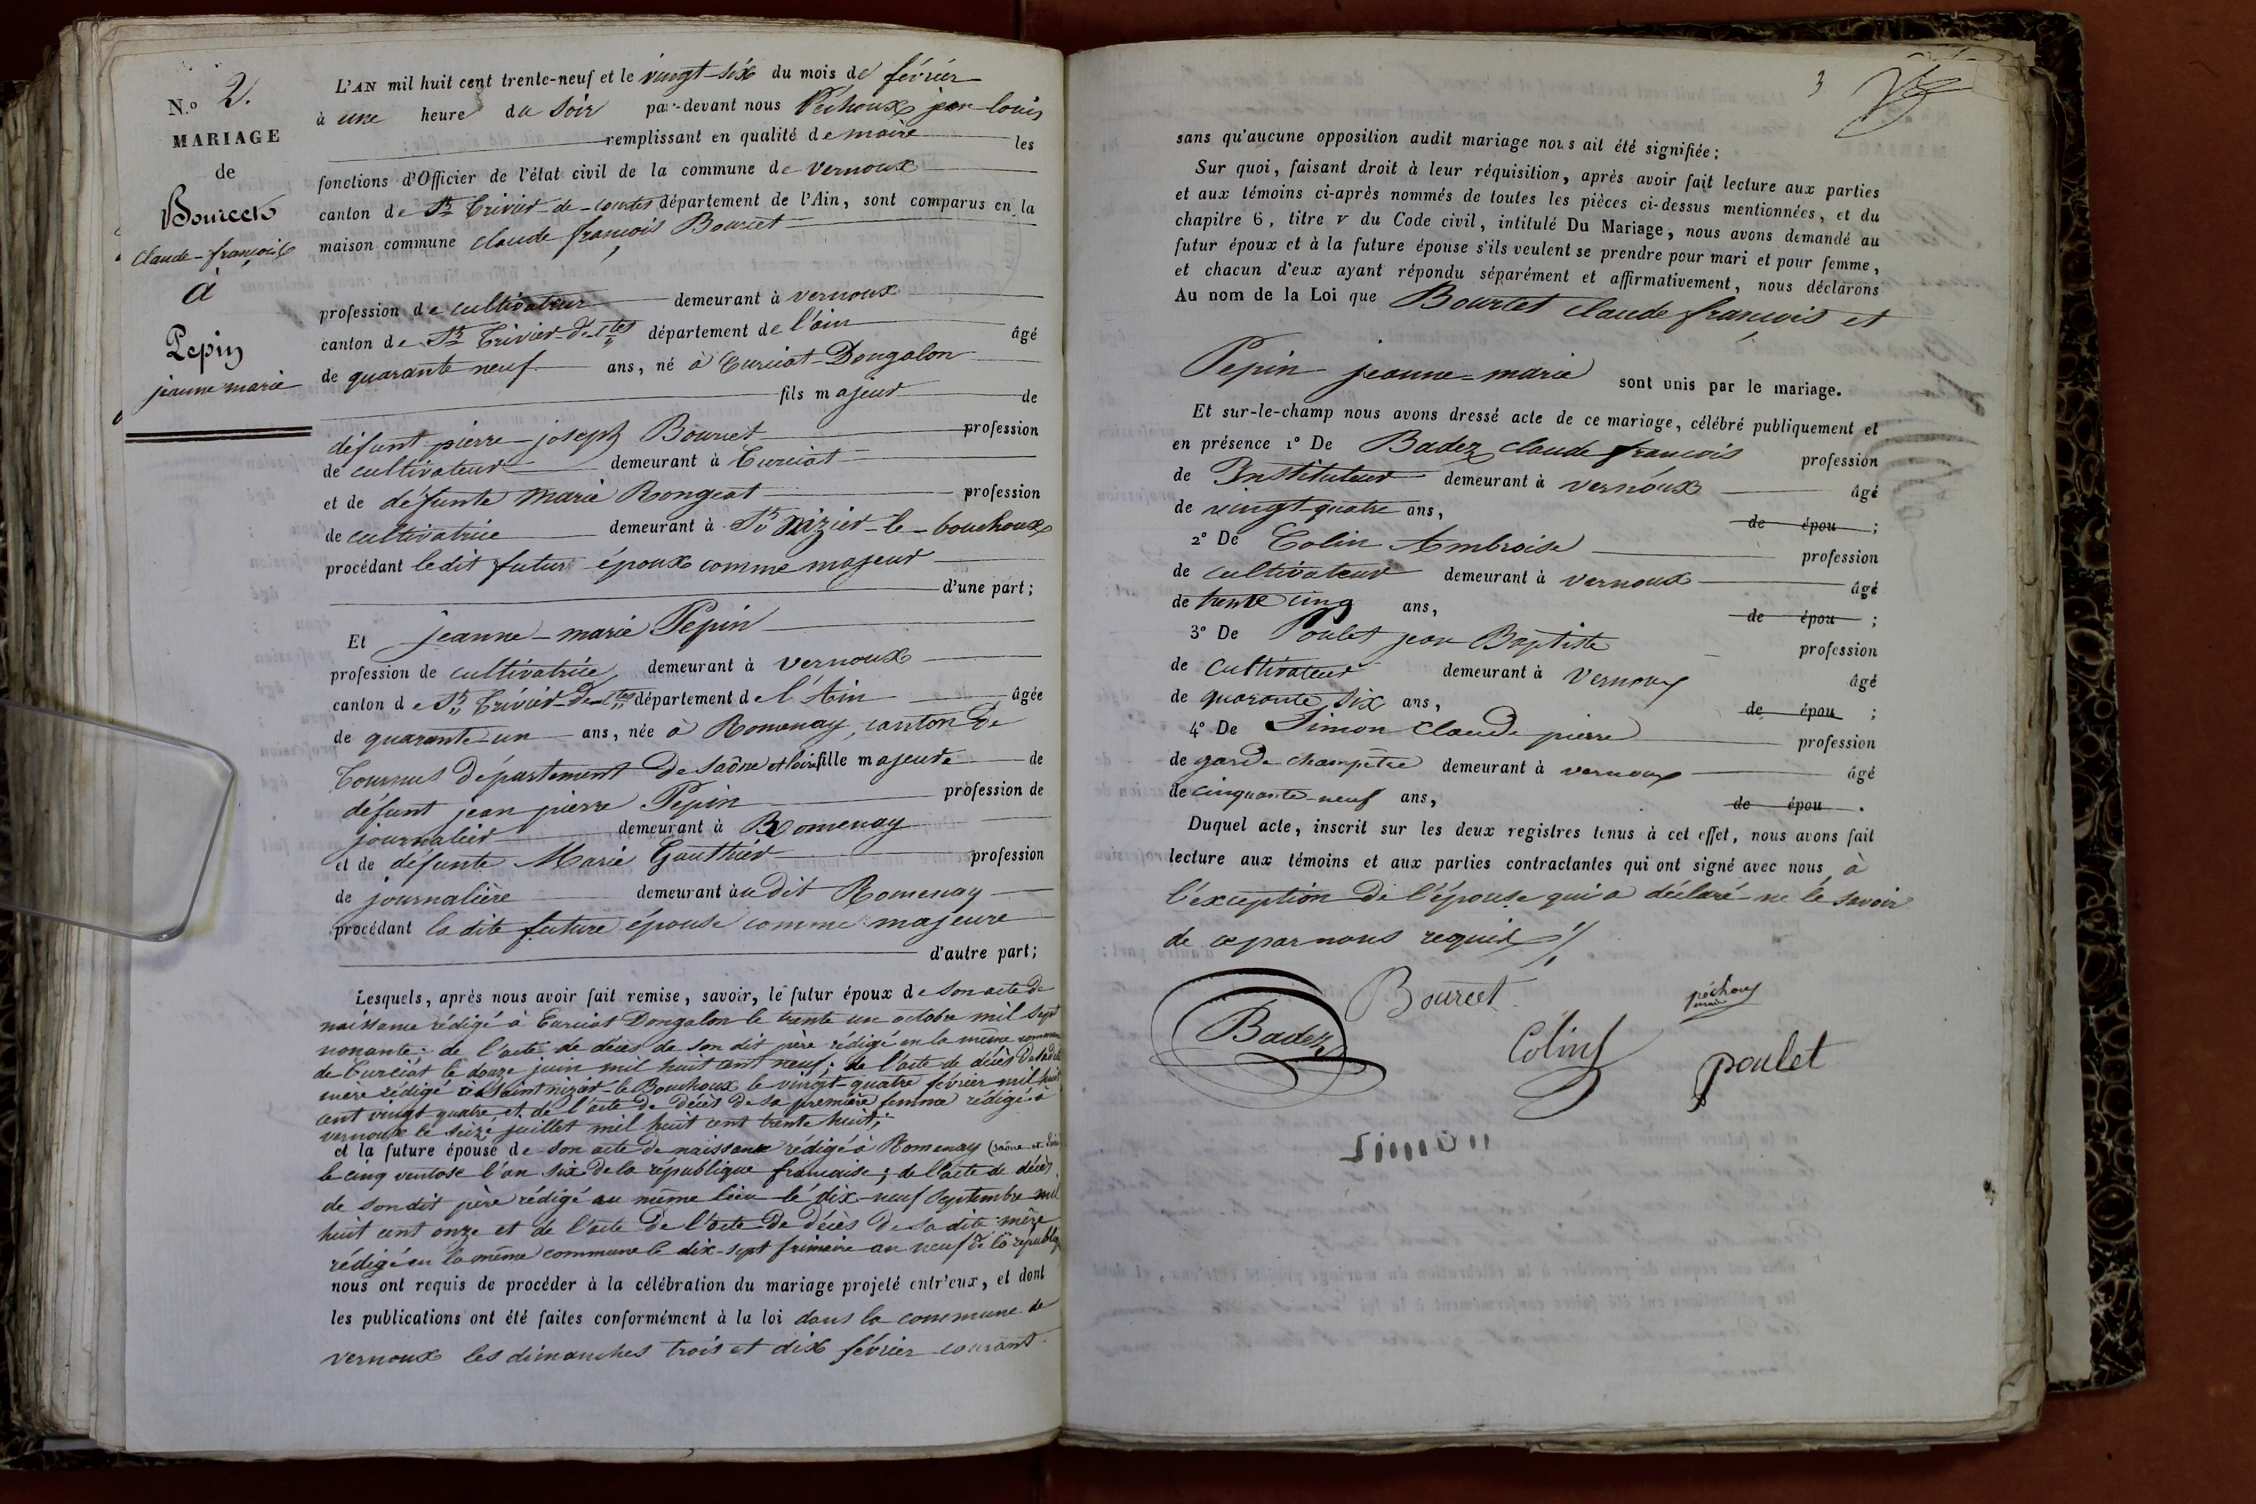 N.º 2.
MARIAGE
de
Bourcet
Claude-françois
à
Pepin
jeanne marie
L'AN mil huit cent trente-neuf et le vingt-six du mois de février
à une heure du soir par-devant nous Péchoux jean-louis
remplissant en qualité de maire les
fonctions d'Officier de l'état civil de la commune de vernoux
canton de St Trivier-de-courtes département de l'Ain, sont comparus en la
maison commune claude françois Bourcet
profession de cultivateur demeurant à vernoux
canton de St Trivier-de-Ctes département de l'ain âgé
de quarante neuf ans, né à Curciat-Dongalon
fils majeur de
défunt pierre-joseph Bourcet profession
de cultivateur demeurant à Curciat
et de défunte Marie Rongeat profession
de cultivatrice demeurant à St nizier-le-bouchoux
procédant le dit futur époux comme majeur
d'une part;
Et jeanne-marie Pepin
profession de cultivatrice demeurant à vernoux
canton de St Trivier-de-Ctes département de l'Ain âgée
de quarante-un ans, née à Romenay, canton de
Tournus département de saône et loire fille majeure de
défunt jean pierre Pepin profession de
journalier demeurant à Romenay
et de défunte Marie Gauthier profession
de journalière demeurant au dit Romenay
procédant la dite future épouse comme majeure
d'autre part;
Lesquels, après nous avoir fait remise, savoir, le futur époux de son acte de
naissance rédigé à Curciat Dongalon le trente un octobre mil sept
nonante; de l'acte de décès de son dit père rédigé en la même commune
de Curciat le douze juin mil huit cent neuf; de l'acte de décès de sa dite
mère rédigé à Saint nizier-le-Bouchoux le vingt-quatre février mil huit
cent vingt quatre et de l'acte de décès de sa première femme rédigé à
vernoux le seize juillet mil huit cent trente huit;
et la future épouse de son acte de naissance rédigé à Romenay (saône et loire
le cinq ventose l'an six de la république française; de l'acte de décès
de son dit père rédigé au même lieu le dix-neuf septembre mil
huit cent onze et de l'acte de l'acte de décès de sa dite mère
rédigé en la même commune le dix-sept frimaire an neuf de la républq
nous ont requis de procéder à la célébration du mariage projeté entr'eux, et dont
les publications ont été faites conformément à la loi dans la commune de
vernoux les dimanches trois et dix février courant
3
sans qu'aucune opposition audit mariage nous ait été signifiée;
Sur quoi, faisant droit à leur réquisition, après avoir fait lecture aux parties
et aux témoins ci-après nommés de toutes les pièces ci-dessus mentionnées, et du
chapitre 6, titre v du Code civil, intitulé Du Mariage, nous avons demandé au
futur époux et à la future épouse s'ils veulent se prendre pour mari et pour femme,
et chacun d'eux ayant répondu séparément et affirmativement, nous déclarons
Au nom de la Loi que Bourcet claude françois et
Pepin jeanne-marie sont unis par le mariage.
Et sur-le-champ nous avons dressé acte de ce mariage, célébré publiquement et
en présence 1º De Badez claude françois profession
de Instituteur demeurant à vernoux âgé
de vingt-quatre ans, de épou ;
2º De Colin Ambroise profession
de cultivateur demeurant à vernoux âgé
de trente cinq ans, de épou ;
3º De Poulet jean Baptiste profession
de cultivateur demeurant à Vernoux âgé
de quarante six ans, de épou ;
4º De Simon Claude pierre profession
de garde champêtre demeurant à vernoux âgé
de cinquante-neuf ans, de épou .
Duquel acte, inscrit sur les deux registres tenus à cet effet, nous avons fait
lecture aux témoins et aux parties contractantes qui ont signé avec nous à
l'exception de l'épouse qui a déclaré ne le savoir
de ce par nous requis
Bourcet péchoux
maire
Badez Colin poulet
simon